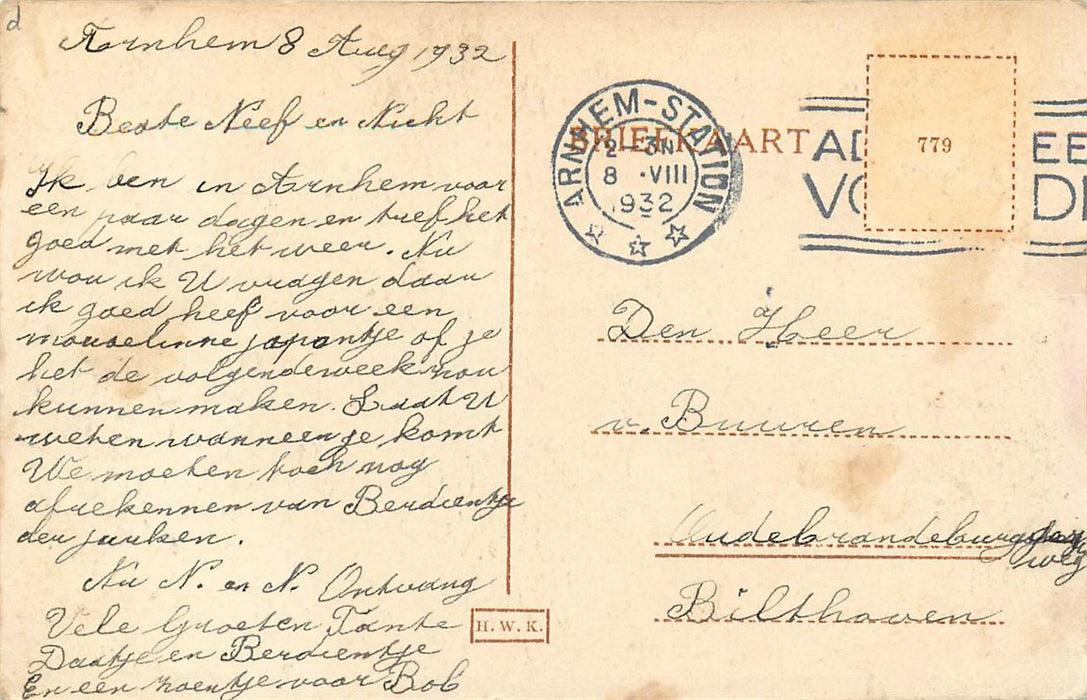 d
Arnhem 8 Aug 1932
Beste Neef en Nicht
Ik ben in Arnhem voor
een paar dagen en tref het
goed met het weer. Nu
wou ik U vragen daar
ik goed heef voor een
mouselinne japontje of je
het de volgendeweek nou
kunnen maken. Laat U
weten wanneer je komt
We moeten toch nog
afrekennen van Berdientje
der jurken.
Nu N. en N. Ontvang
Vele Groeten Tante
Daatje en Berdientje
En een zoentje voor Bob
BRIEFKAART
ARNHEM-STATION
2-3N
8 .VIII
1932
779
Den Heer
v. Buuren
Oudebrandeburger
weg
Bilthoven
H. W. K.